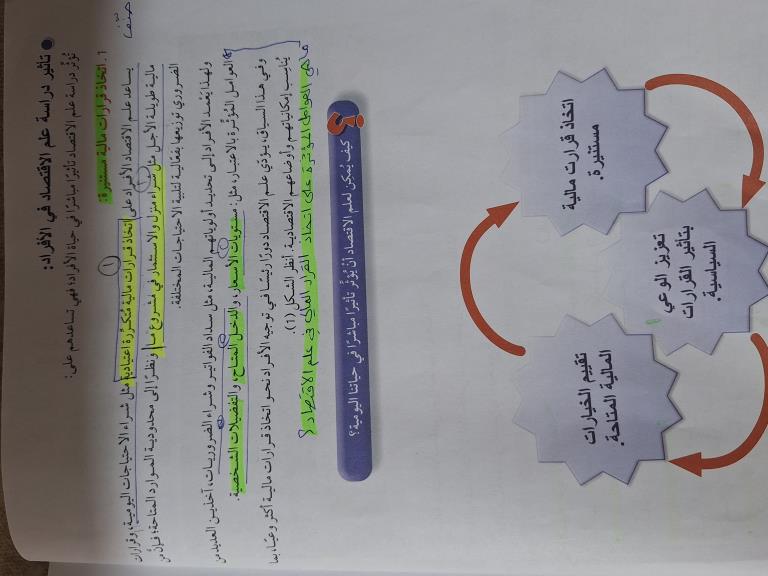 صنّف
● تأثير دراسة علم الاقتصاد في الأفراد:
تُؤثّر دراسة علم الاقتصاد تأثيرًا مباشرًا في حياة الأفراد؛ فهي تساعدهم على:
1. اتخاذ قرارات مالية مستنيرة:
يساعد علم الاقتصاد الأفراد على اتخاذ قرارات مالية مُتكرّرة اعتيادية مثل شراء الاحتياجات اليومية، وقرارات
مالية طويلة الأجل مثل شراء منزل والاستثمار في مشروع ما. ونظرًا إلى محدودية الموارد المتاحة؛ فإنّ من
الضروري توزيعها بفعّالية لتلبية الاحتياجات المختلفة.
ولهذا يَعْمد الأفراد إلى تحديد أولوياتهم المالية، مثل سداد الفواتير وشراء الضروريات، آخذين العديد من
العوامل المُؤثّرة بالاعتبار، مثل: مستويات الأسعار، والدخل المتاح، والتفضيلات الشخصية.
وفي هذا السياق، يؤدي علم الاقتصاد دورًا رئيسًا في توجيه الأفراد نحو اتخاذ قرارات مالية أكثر وعيًا، بما
يُناسِب إمكانياتهم وأوضاعهم الاقتصادية. أنظر الشكل (1).
ما هي العوامل المؤثرة على اتخاذ القرار المالي في علم الاقتصاد؟
كيف يُمكِن لعلم الاقتصاد أنْ يُؤثّر تأثيرًا مباشرًا في حياتنا اليومية؟
اتخاذ قرارت مالية
مستنيرة.
تعزيز الوعي
بتأثير القرارات
السياسية.
تقييم الخيارات
المالية المتاحة.